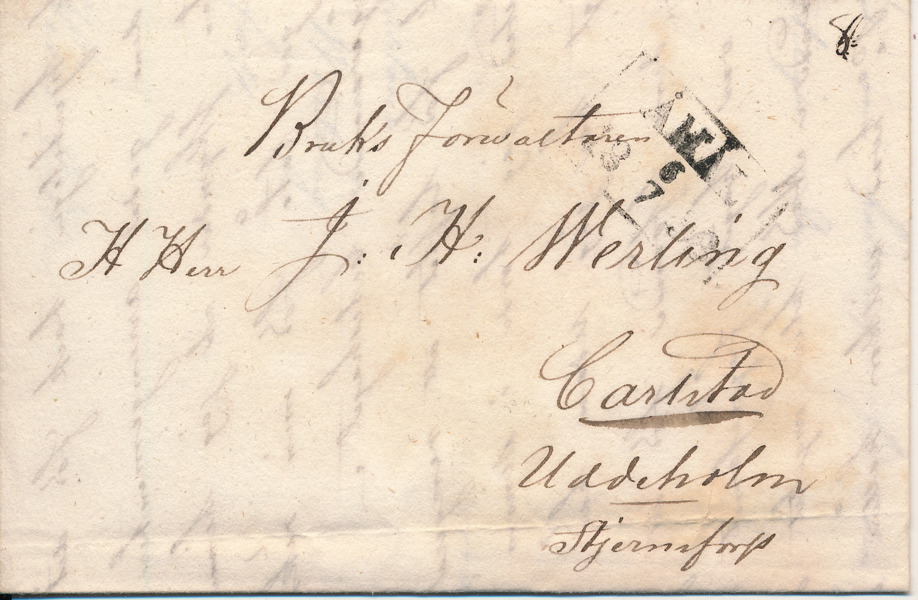 Bruks Förwaltaren
H Herr J: H: Werling
Carlstad
Uddeholm
Stjernsfors
ÅMÅL
6
7